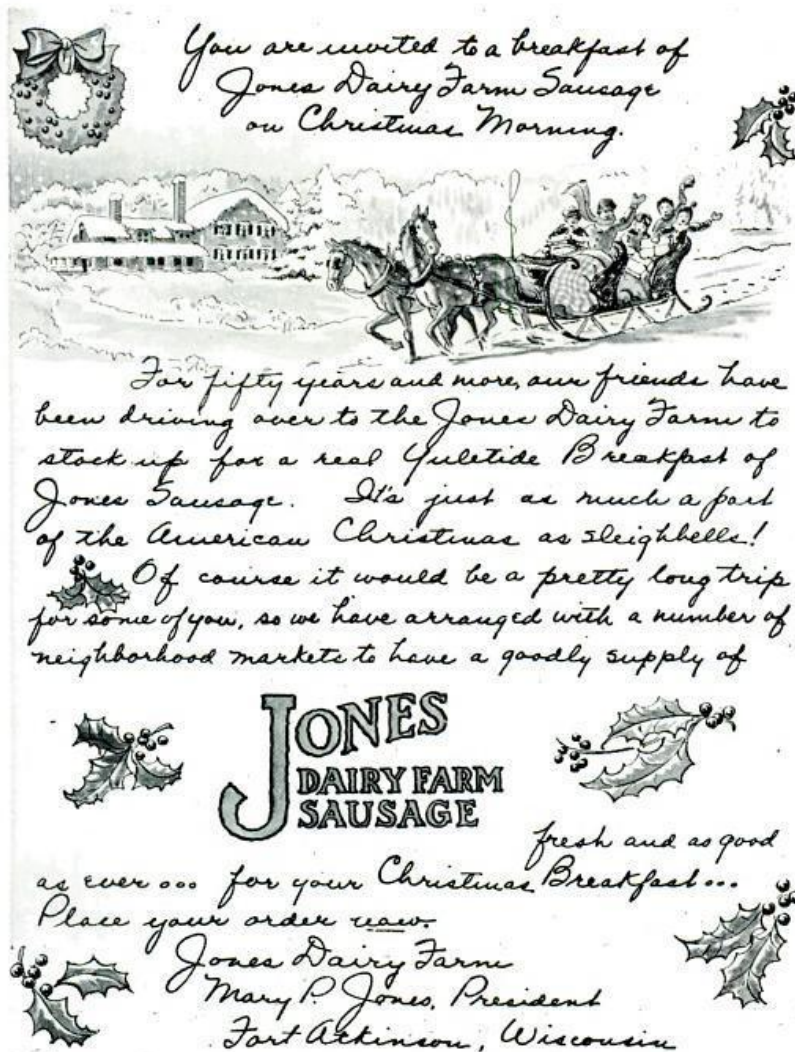 You are invited to a breakfast of
Jones Dairy Farm Sausage
on Christmas Morning.
For fifty years and more, our friends have
been driving over to the Jones Dairy Farm to
stock up for a real Yuletide Breakfast of
Jones Sausage. It's just as much a part
of the American Christmas as sleighbells!
Of course it would be a pretty long trip
for some of you, so we have arranged with a number of
neighborhood markets to have a goodly supply of
JONES
DAIRY FARM
SAUSAGE
fresh and as good
as ever... for your Christmas Breakfast...
Place your order now.
Jones Dairy Farm
Mary P. Jones, President
Fort Atkinson, Wisconsin